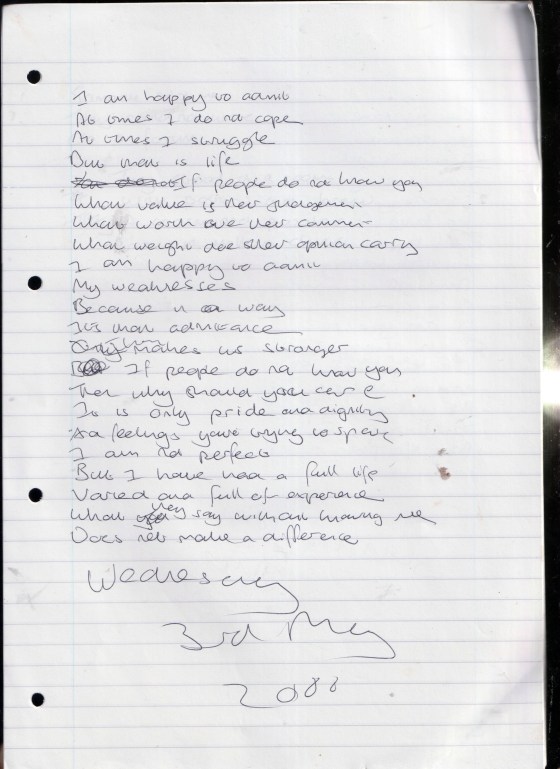 I am happy to admit
At times I do not cope
At times I struggle
But that is life
If people do not know you
What value is their judgement
What worth are their comment
What weight does their opinion carry
I am happy to admit
My weaknesses
Because in a way
It's that admittance
Only makes us stronger
If people do not know you
Then why should you care
It is only pride and dignity
And feelings you're trying to spare
I am not perfect
But I have had a full life
Varied and full of experience
What they say without knowing me
Does not make a difference
Wednesday
3rd May
2000